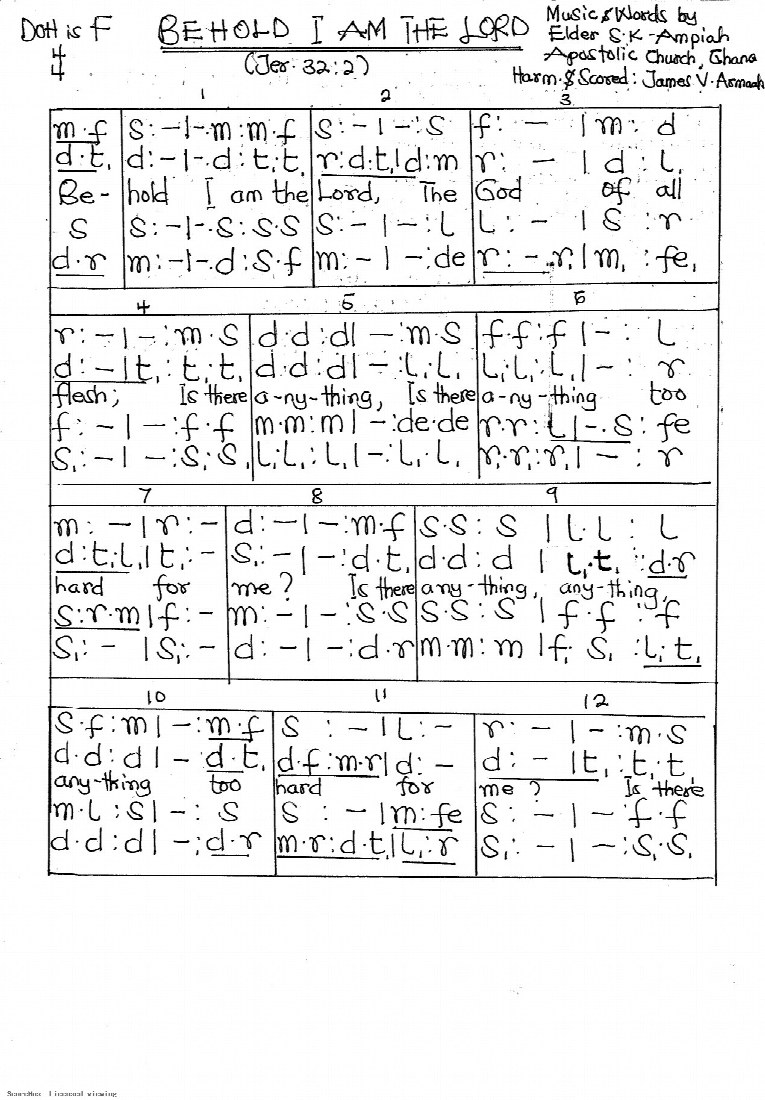 DOH is F
4
4
BEHOLD I AM THE LORD
(Jer. 32:2)
Music & Words by
Elder S.K-Ampiah
Apostolic Church, Ghana
Harm. & Scored: James V. Armah
1 2 3
m.f | s:-|-.m:m.f | s:-|-:s | f: - |m: d
d.t, | d:-|-.d:t,:t, | r:d.t,|d:m | r: - |d:l,
Be- hold I am the Lord, The God of all
s | s:-|-.s:s.s | s:-|-:l | l: - |s :r
d.r | m:-|-.d:s.f | m:-|-:de | r:-.r,|m, :fe,
4 5 6
r:-|-:m.s | d.d:d|-:m.s | f.f:f|-: l
d:-|t,:t,:t, | d.d:d|-:l,.l, | l,.l,:l,|-: r
flesh; Is there a-ny-thing, Is there a-ny-thing too
f:-|-:f.f | m.m:m|-:de.de | r.r:l|-.s:fe
s,:-|-:s,.s, | l,.l,:l,|-:l,.l, | r,.r,:r,|-: r
7 8 9
m: -|r:- | d:-|-:m.f | s.s:s |l.l: l
d:t,.l,|t,:- | s,:-|-:d.t, | d.d:d | t,.t, :d.r
hard for me? Is there any-thing, any-thing,
s:r.m|f:- | m:-|-:s.s | s.s:s |f.f:f
s,:- |s,:- | d:-|-:d.r | m.m:m |f, s, :l,.t,
10 11 12
s.f:m|-:m.f | s :-|l:- | r:-|-:m.s
d.d:d|-d.t, | d.f:m.r|d:- | d:-|t,:t.t,
any-thing too hard for me? Is there
m.l:s|-: s | s :-|m:fe | s:-|-f.f
d.d:d|-:d.r | m.r:d.t,|l,:r | s,:-|-:s,.s,
ScoreMee licensed viewing